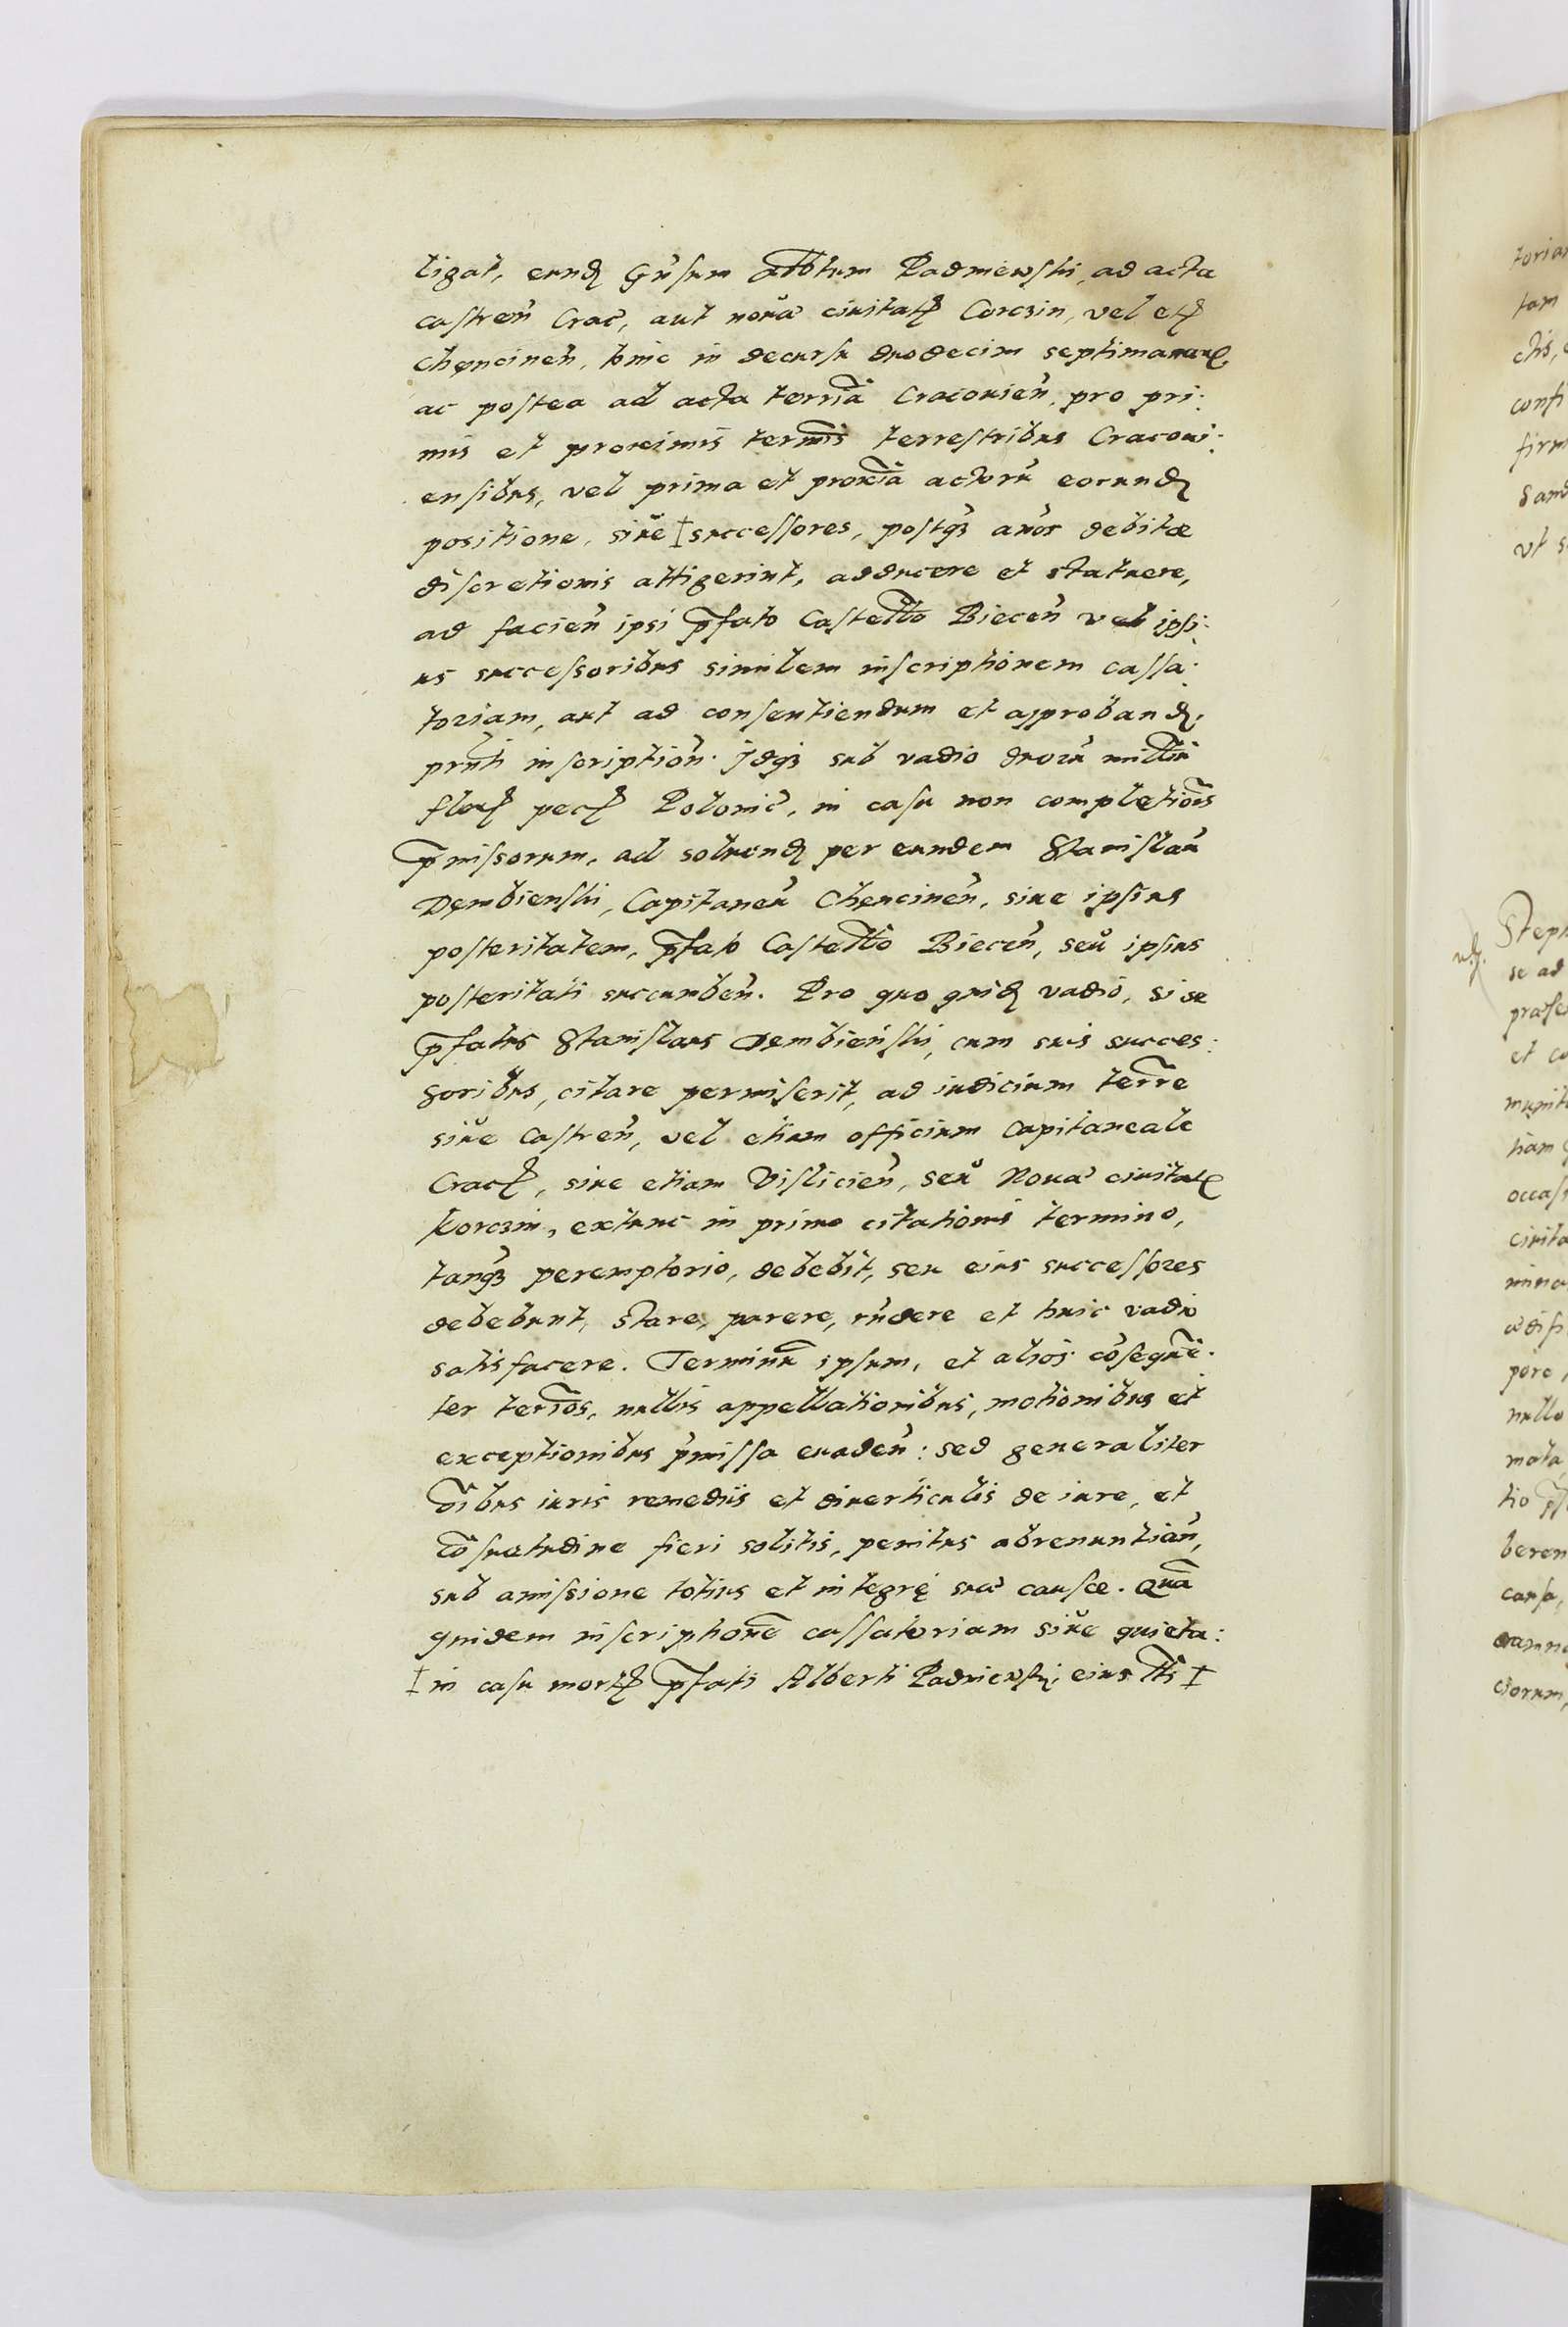 ligat, eund Gnsum Albtum Padniewski, ad acta
castren Crac, aut nova civitat Corczin, vel et
Chęncinen, hinc in decursu duodecim septimanaru,
ac postea ad acta terria Cracovien, pro pri:
mis et proximis termis terrestribus Cracovi:
ensibus, vel prima et proxia actoru eorund
positione, sive ‡ successores, postq3 annos debitæ
discretionis attigerint, adducere et statuere,
ad facien ipsi pfato Castello Biecen vel ipsi:
us successoribus similem inscriptionem cassa:
toriam, aut ad consentiendum et approband,
prnti inscription. Idq3 sub vadio duoru milliu
flor pec Polonic, in casu non completiois
pmissorum, ad solvend per eundem Stanislau
Dembienski, Capitaneu Chęncinen, sive ipsius
posteritatem, pfato Castello Biecen, seu ipsius
posteritati succumben. Pro quo quid vadio, si se
pfatus Stanislaus Dembienski, cum suis succes:
soribus, citare permiserit, ad iudicium terre
sive Castren, vel etiam officium Capitaneale
Crac, sive etiam Vislicien, seu Nova civitat
Korczin, extunc in primo citationis termino,
tanq3 peremptorio, debebit, seu eius successores
debebunt, stare, parere, rndere et huic vadio
satisfacere. Terminu ipsum, et alios coseque:
ter terios, nullis appellationibus, motionibus et
exceptionibus pmissa evaden: sed generaliter
oibus iuris remediis et diverticulis de iure, et
cosuetudine fieri solitis, penitus abrenuntian,
sub amissione totius et integrę suæ causæ. Qua
quidem inscriptione cassatoriam sive quieta:
‡ in casu mort pfati Alberti Padniewski, eius lli ‡